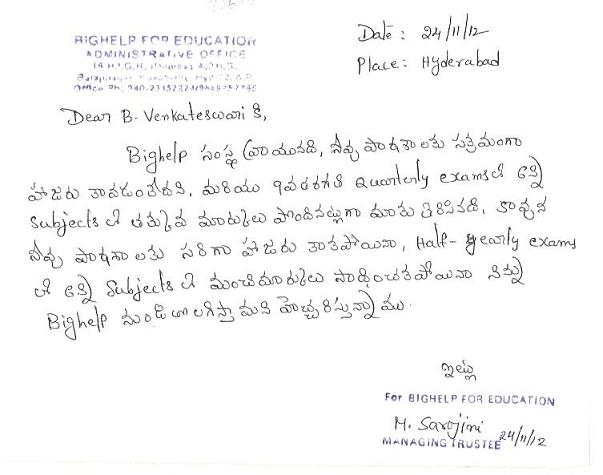 BIGHELP FOR EDUCATION
ADMINISTRATIVE OFFICE
Date : 24/11/12
Place : Hyderabad
Dear B. Venkateswari కి,
Bighelp సంస్థ వ్రాయునది, నీవు పాఠశాలకు సక్రమంగా
హాజరు కావడంలేదని, మరియు 9వతరగతి Quarterly exams లో అన్ని
Subjects లో తక్కువ మార్కులు పొందినట్లుగా మాకు తెలిసినది. కావున
నీవు పాఠశాలకు సరిగా హాజరు కాకపోయినా, Half-yearly exams
లో అన్ని Subjects లో మంచిమార్కులు సాధించకపోయినా నిన్ను
Bighelp నుండి తొలగిస్తామని హెచ్చరిస్తున్నాము.
ఇట్లు
For BIGHELP FOR EDUCATION
M. Sarojini
MANAGING TRUSTEE 24/11/12